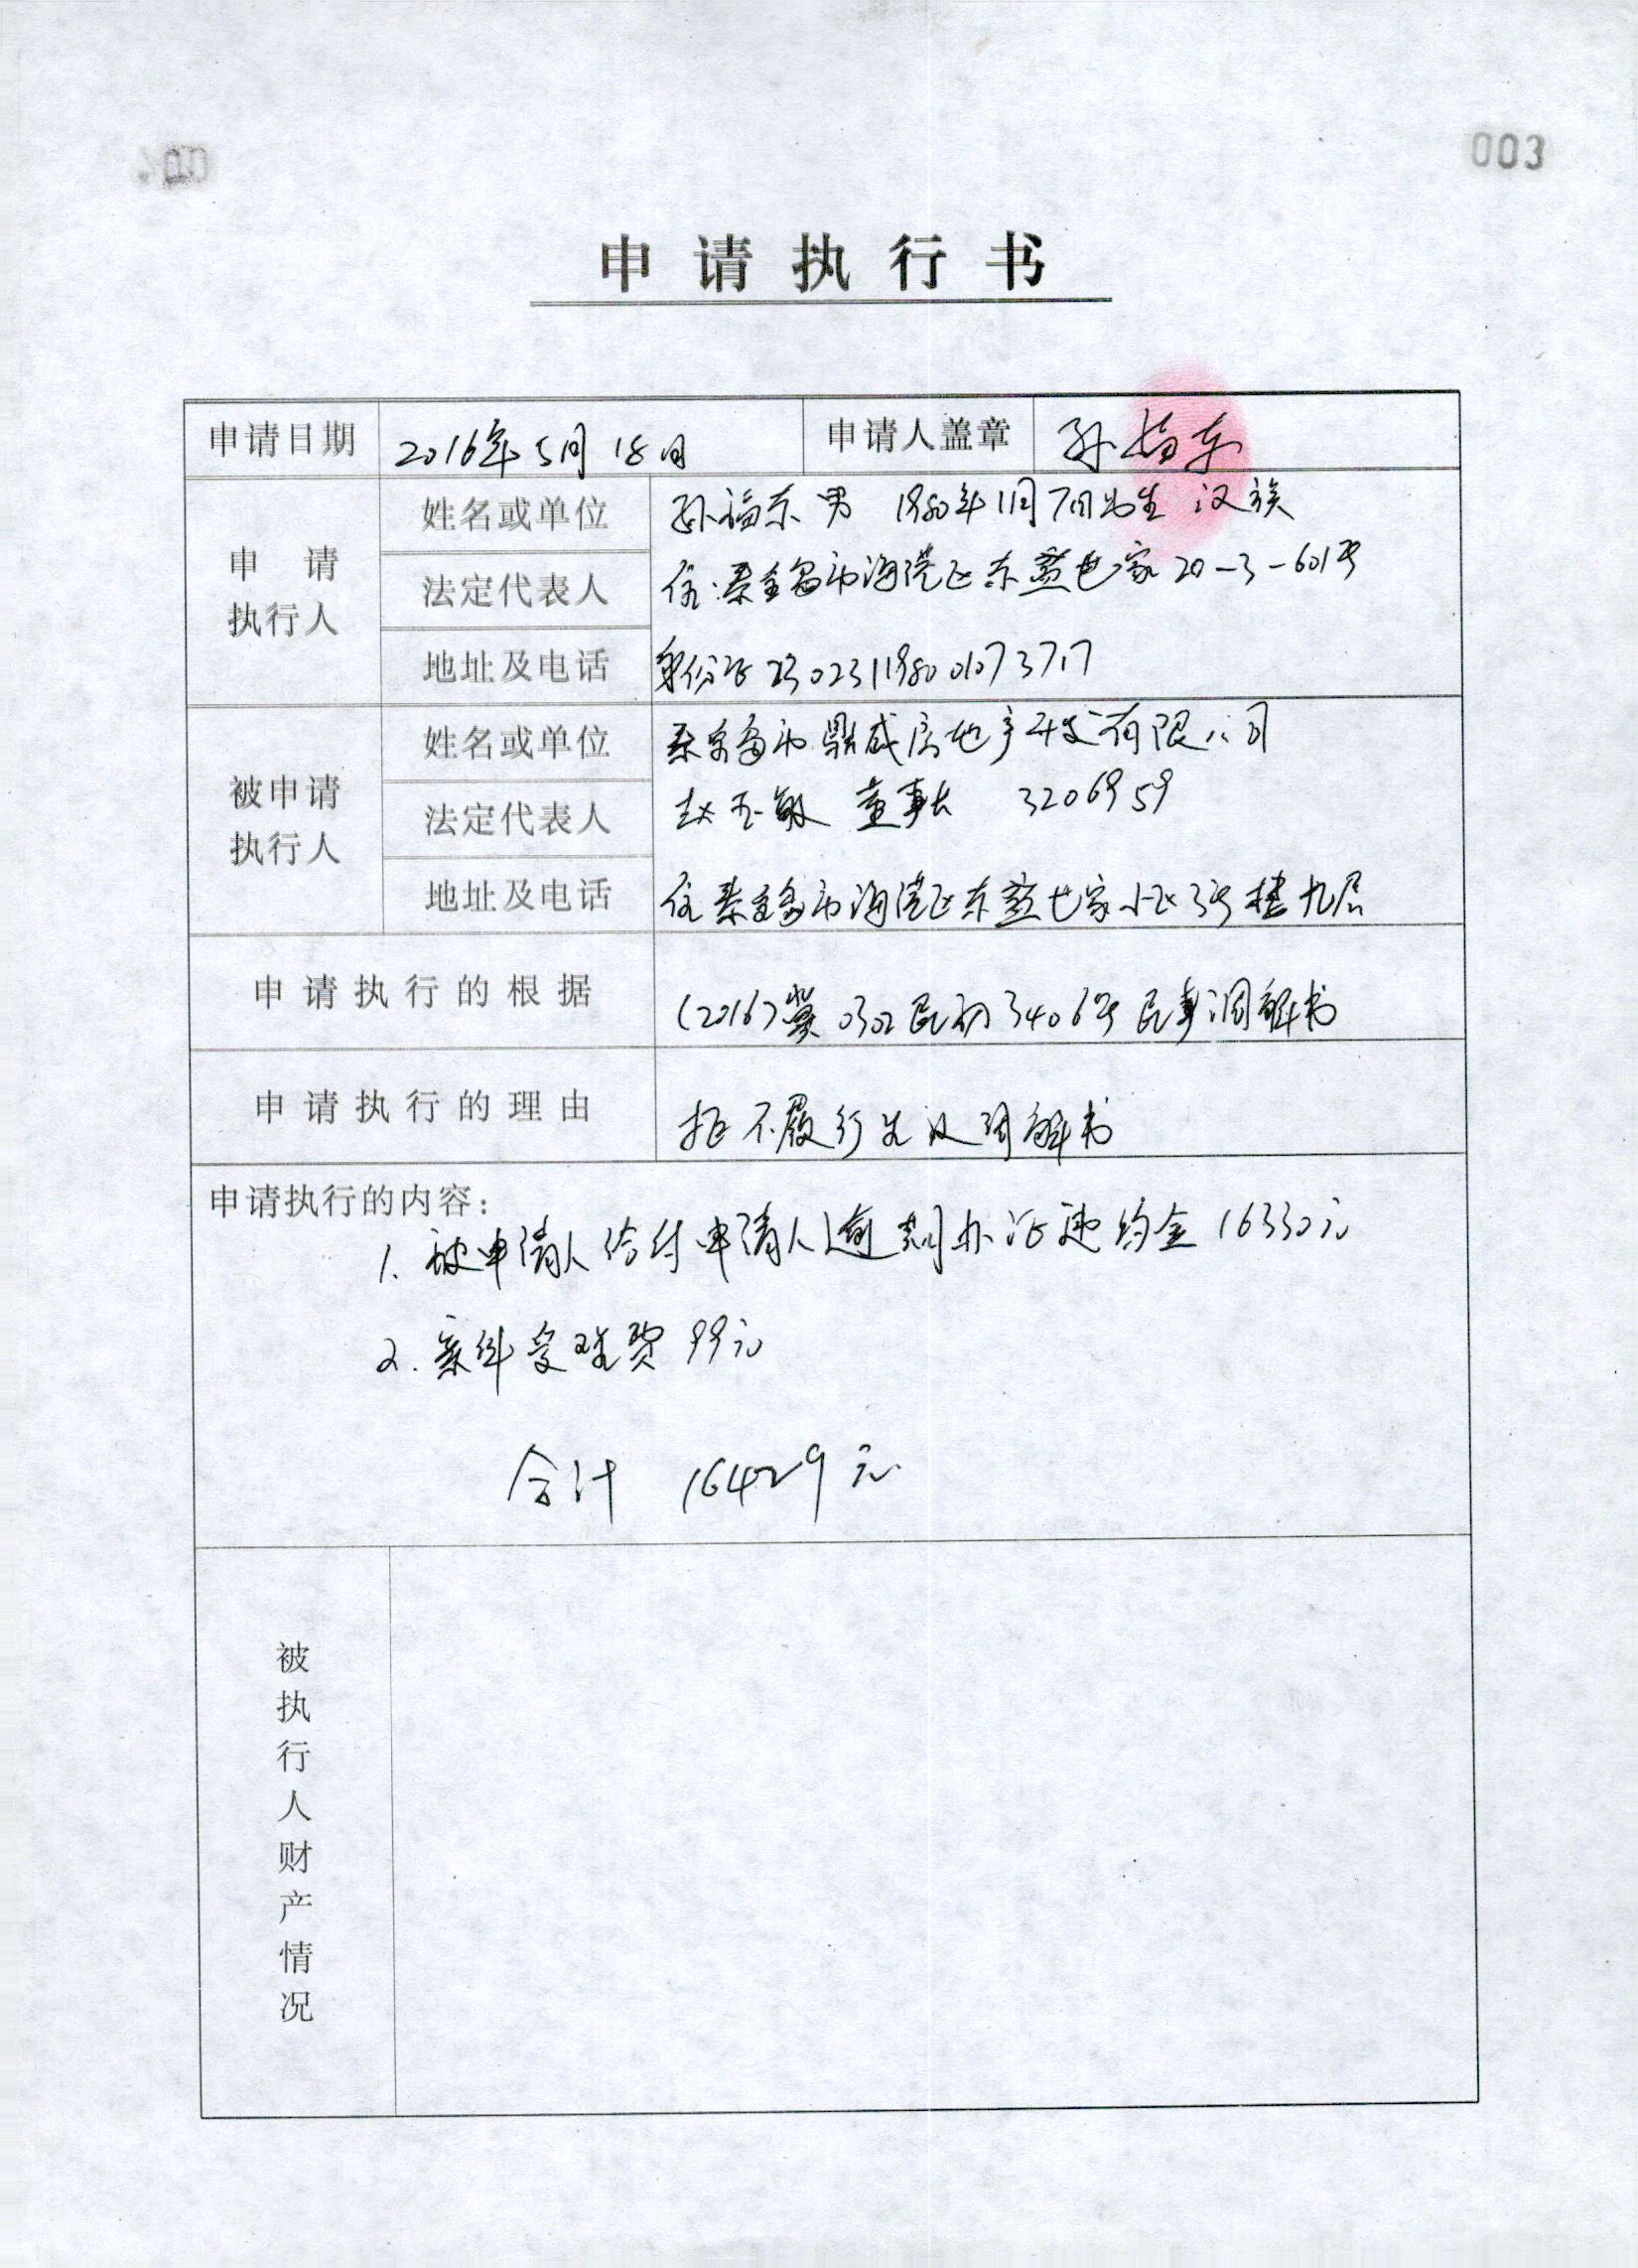 003
申请执行书
申请日期 2016年5月18日 申请人盖章 孙福东
申请执行人
姓名或单位 孙福东 男 1980年1月7日出生 汉族
法定代表人 住:秦皇岛市海港区东蓝世家20-3-601号
地址及电话 身份证230231198001073717
被申请执行人
姓名或单位 秦皇岛市鼎盛房地产开发有限公司
法定代表人 赵玉敏 董事长 3206959
地址及电话 住秦皇岛市海港区东蓝世家小区3号楼九层
申请执行的根据 (2016)冀0302民初3406号民事调解书
申请执行的理由 拒不履行生效调解书
申请执行的内容:
1.被申请人给付申请人逾期办证违约金16330元
2.案件受理费99元
合计 16429元
被执行人财产情况